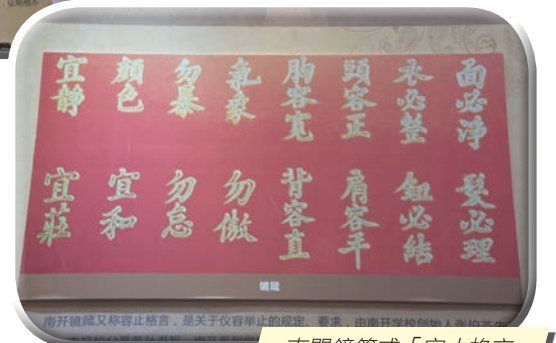 面必淨 髮必理
衣必整 鈕必結
頭容正 肩容平
胸容寬 背容直
氣象 勿傲
勿暴 勿怠
顏色 宜和
宜靜 宜莊
镜箴
南开镜箴又称容止格言，是关于仪容举止的规定、要求，由南开学校创始人张伯苓